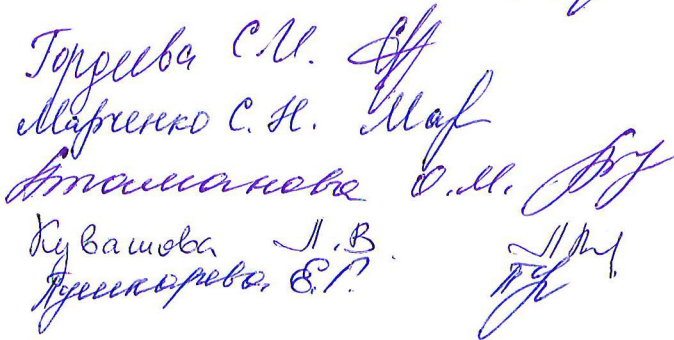 Гордеева С.И.
Марченко С.Н. Мар
Атаманова О.М.
Кувашова Л.В.
Пушкарева Е.Г.